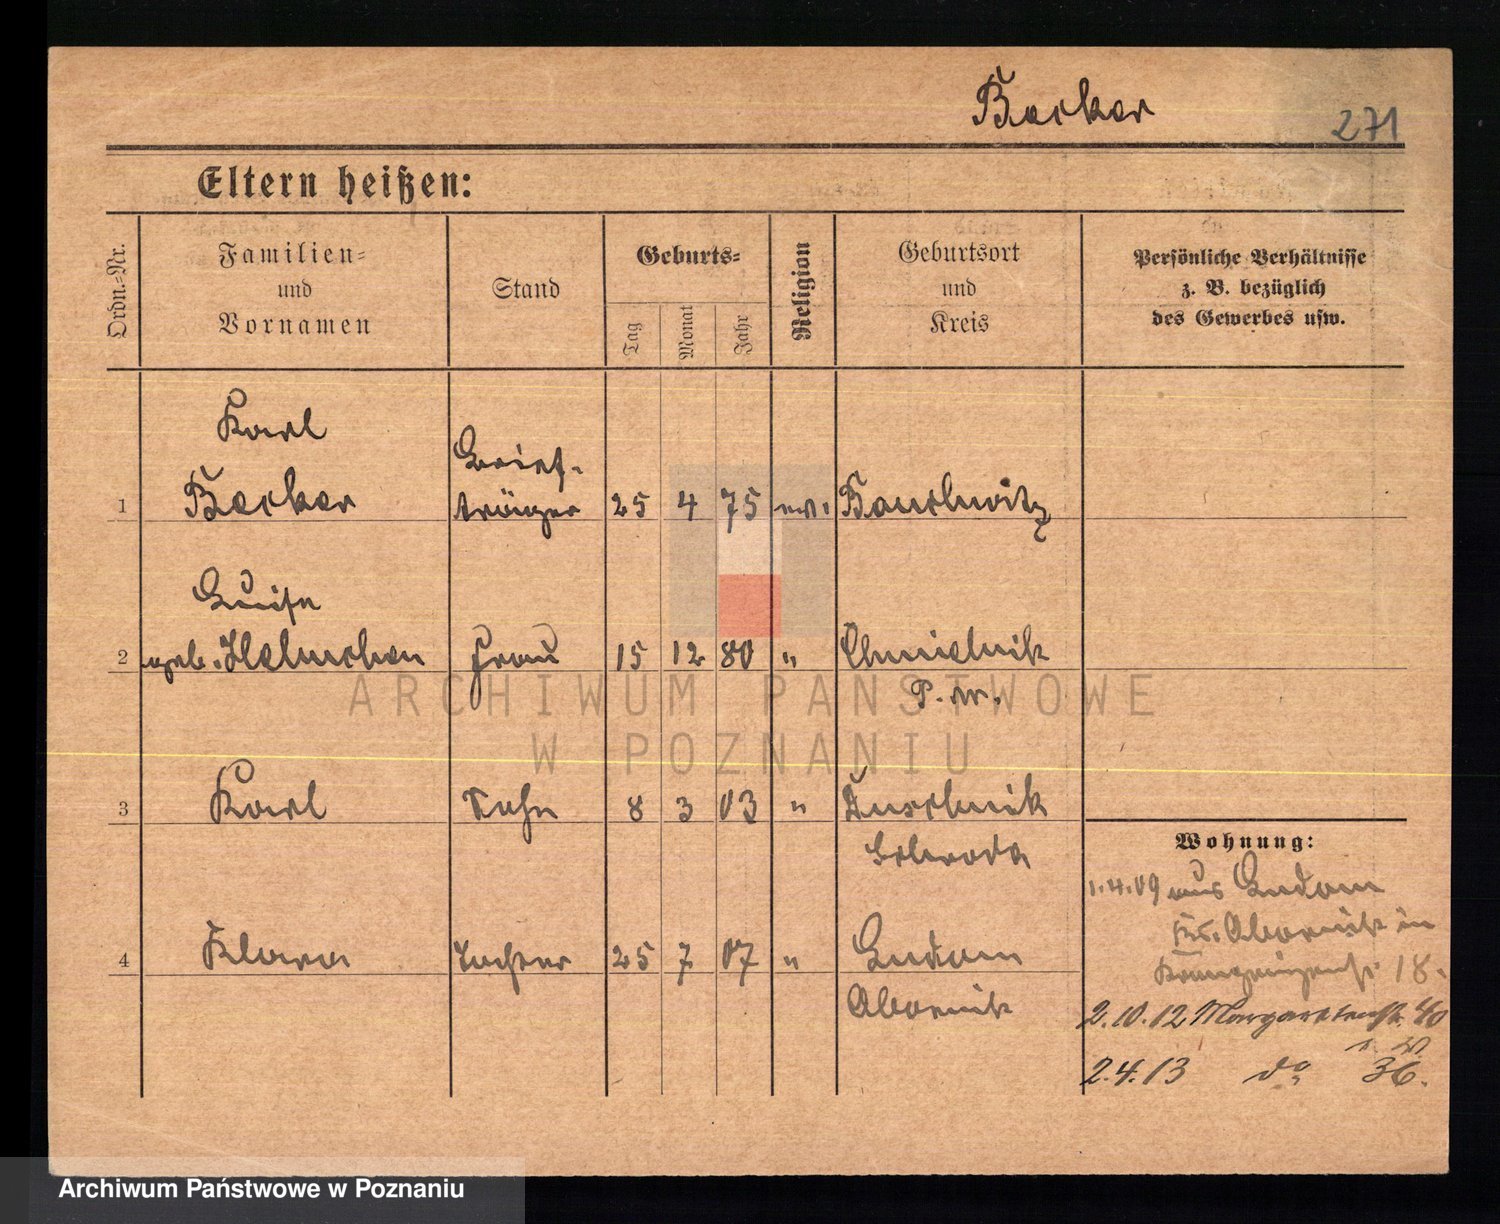 Becker
271
Eltern heißen:
Ordn.=Nr.
Familien=
und
Vornamen
Stand
Geburts=
Tag
Monat
Jahr
Religion
Geburtsort
und
Kreis
Persönliche Verhältnisse
z. B. bezüglich
des Gewerbes usw.
Karl
Becker
Brief-
träger
1
25
4
75
ev.
Bauchwitz
Luise
2
geb. Helmchen
Frau
15
12
80
"
Chmielnik
P. W.
3
Karl
Sohn
8
3
03
"
Duschnik
Schroda
4
Klara
Tochter
25
7
07
"
Ludom
Obornik
Wohnung:
1.4.09 aus Ludom
Kr. Obornik in
18.
2.10.12 Margaretenstr. 40
2.4.13 do 36.
ARCHIWUM PAŃSTWOWE
W POZNANIU
Archiwum Państwowe w Poznaniu